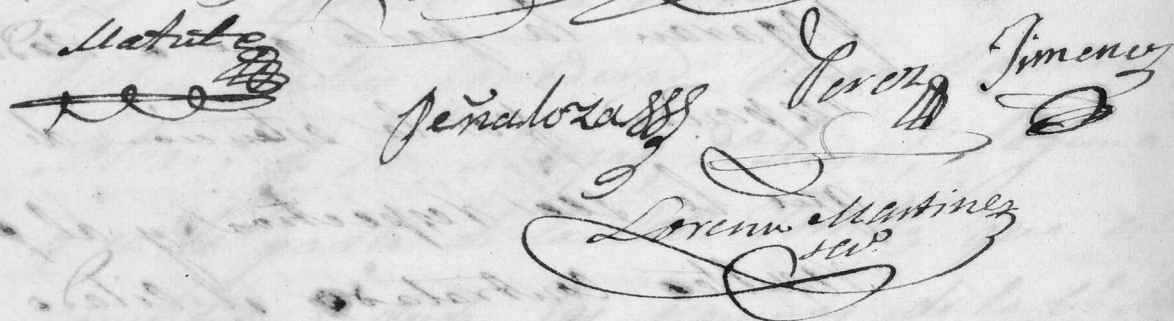 Matute
Peñaloza
Perez
Jimenez
Lorenzo Martinez